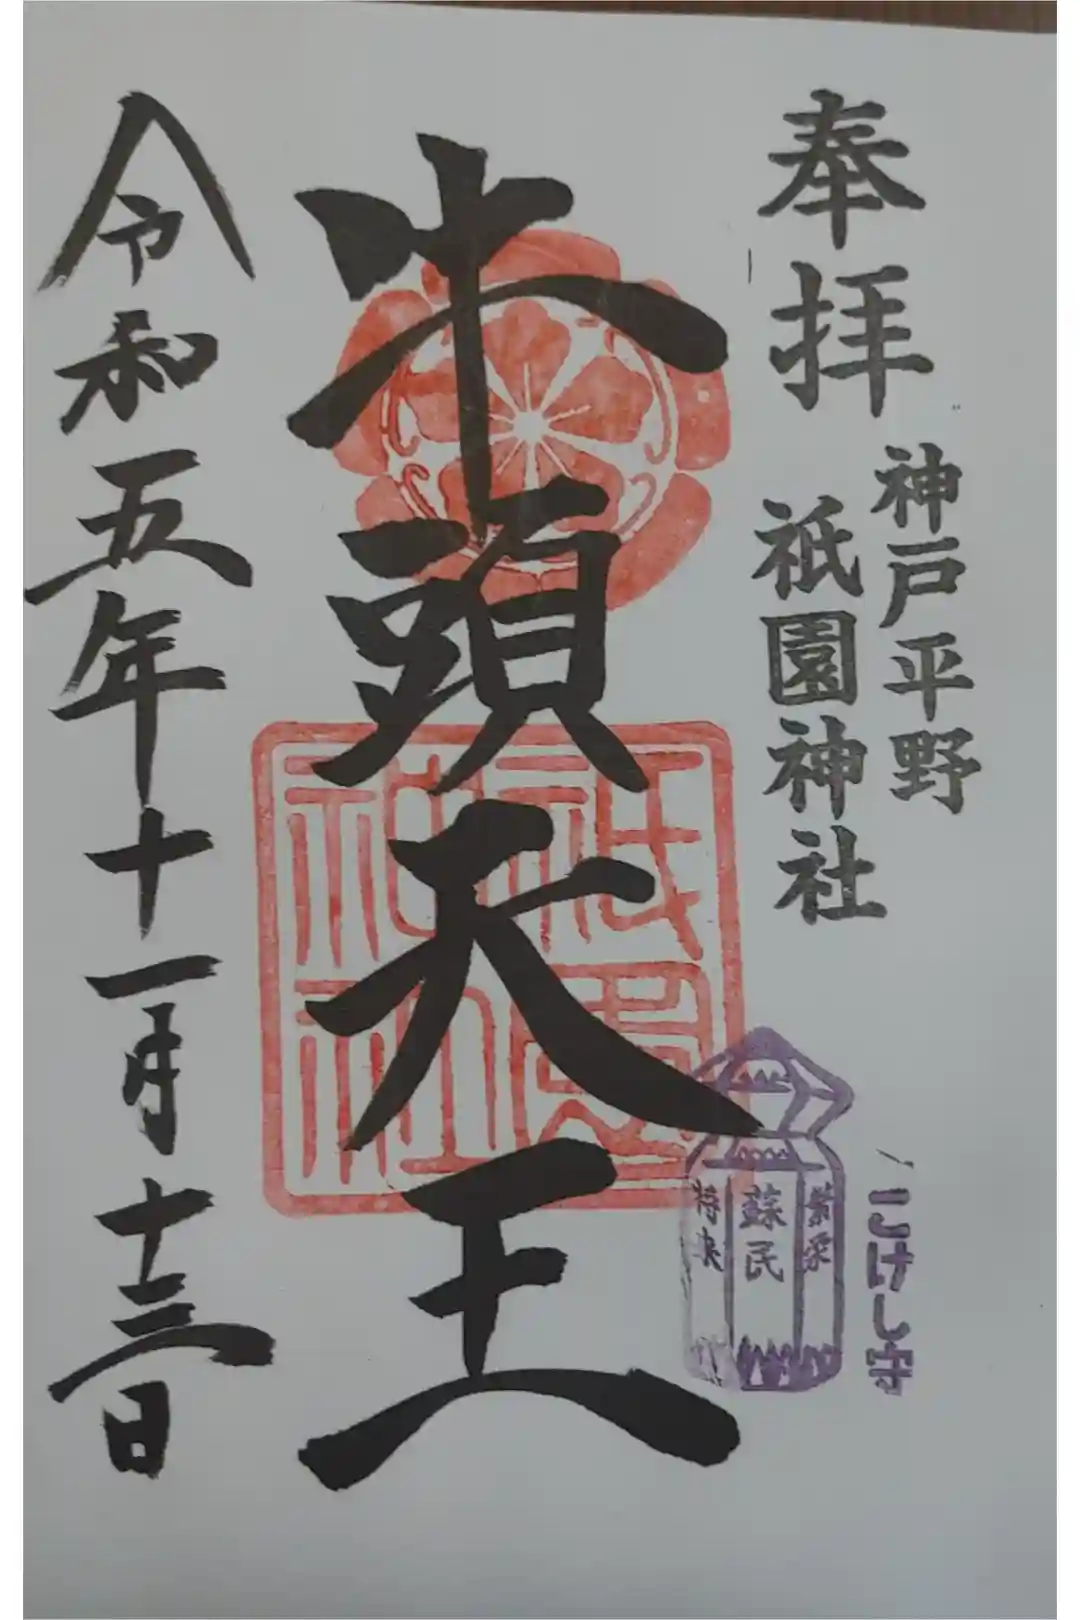 奉拝
神戸平野
祇園神社
牛頭天王
祇園
神社
繁栄
蘇民
将来
こけし守
令和五年十一月十三日